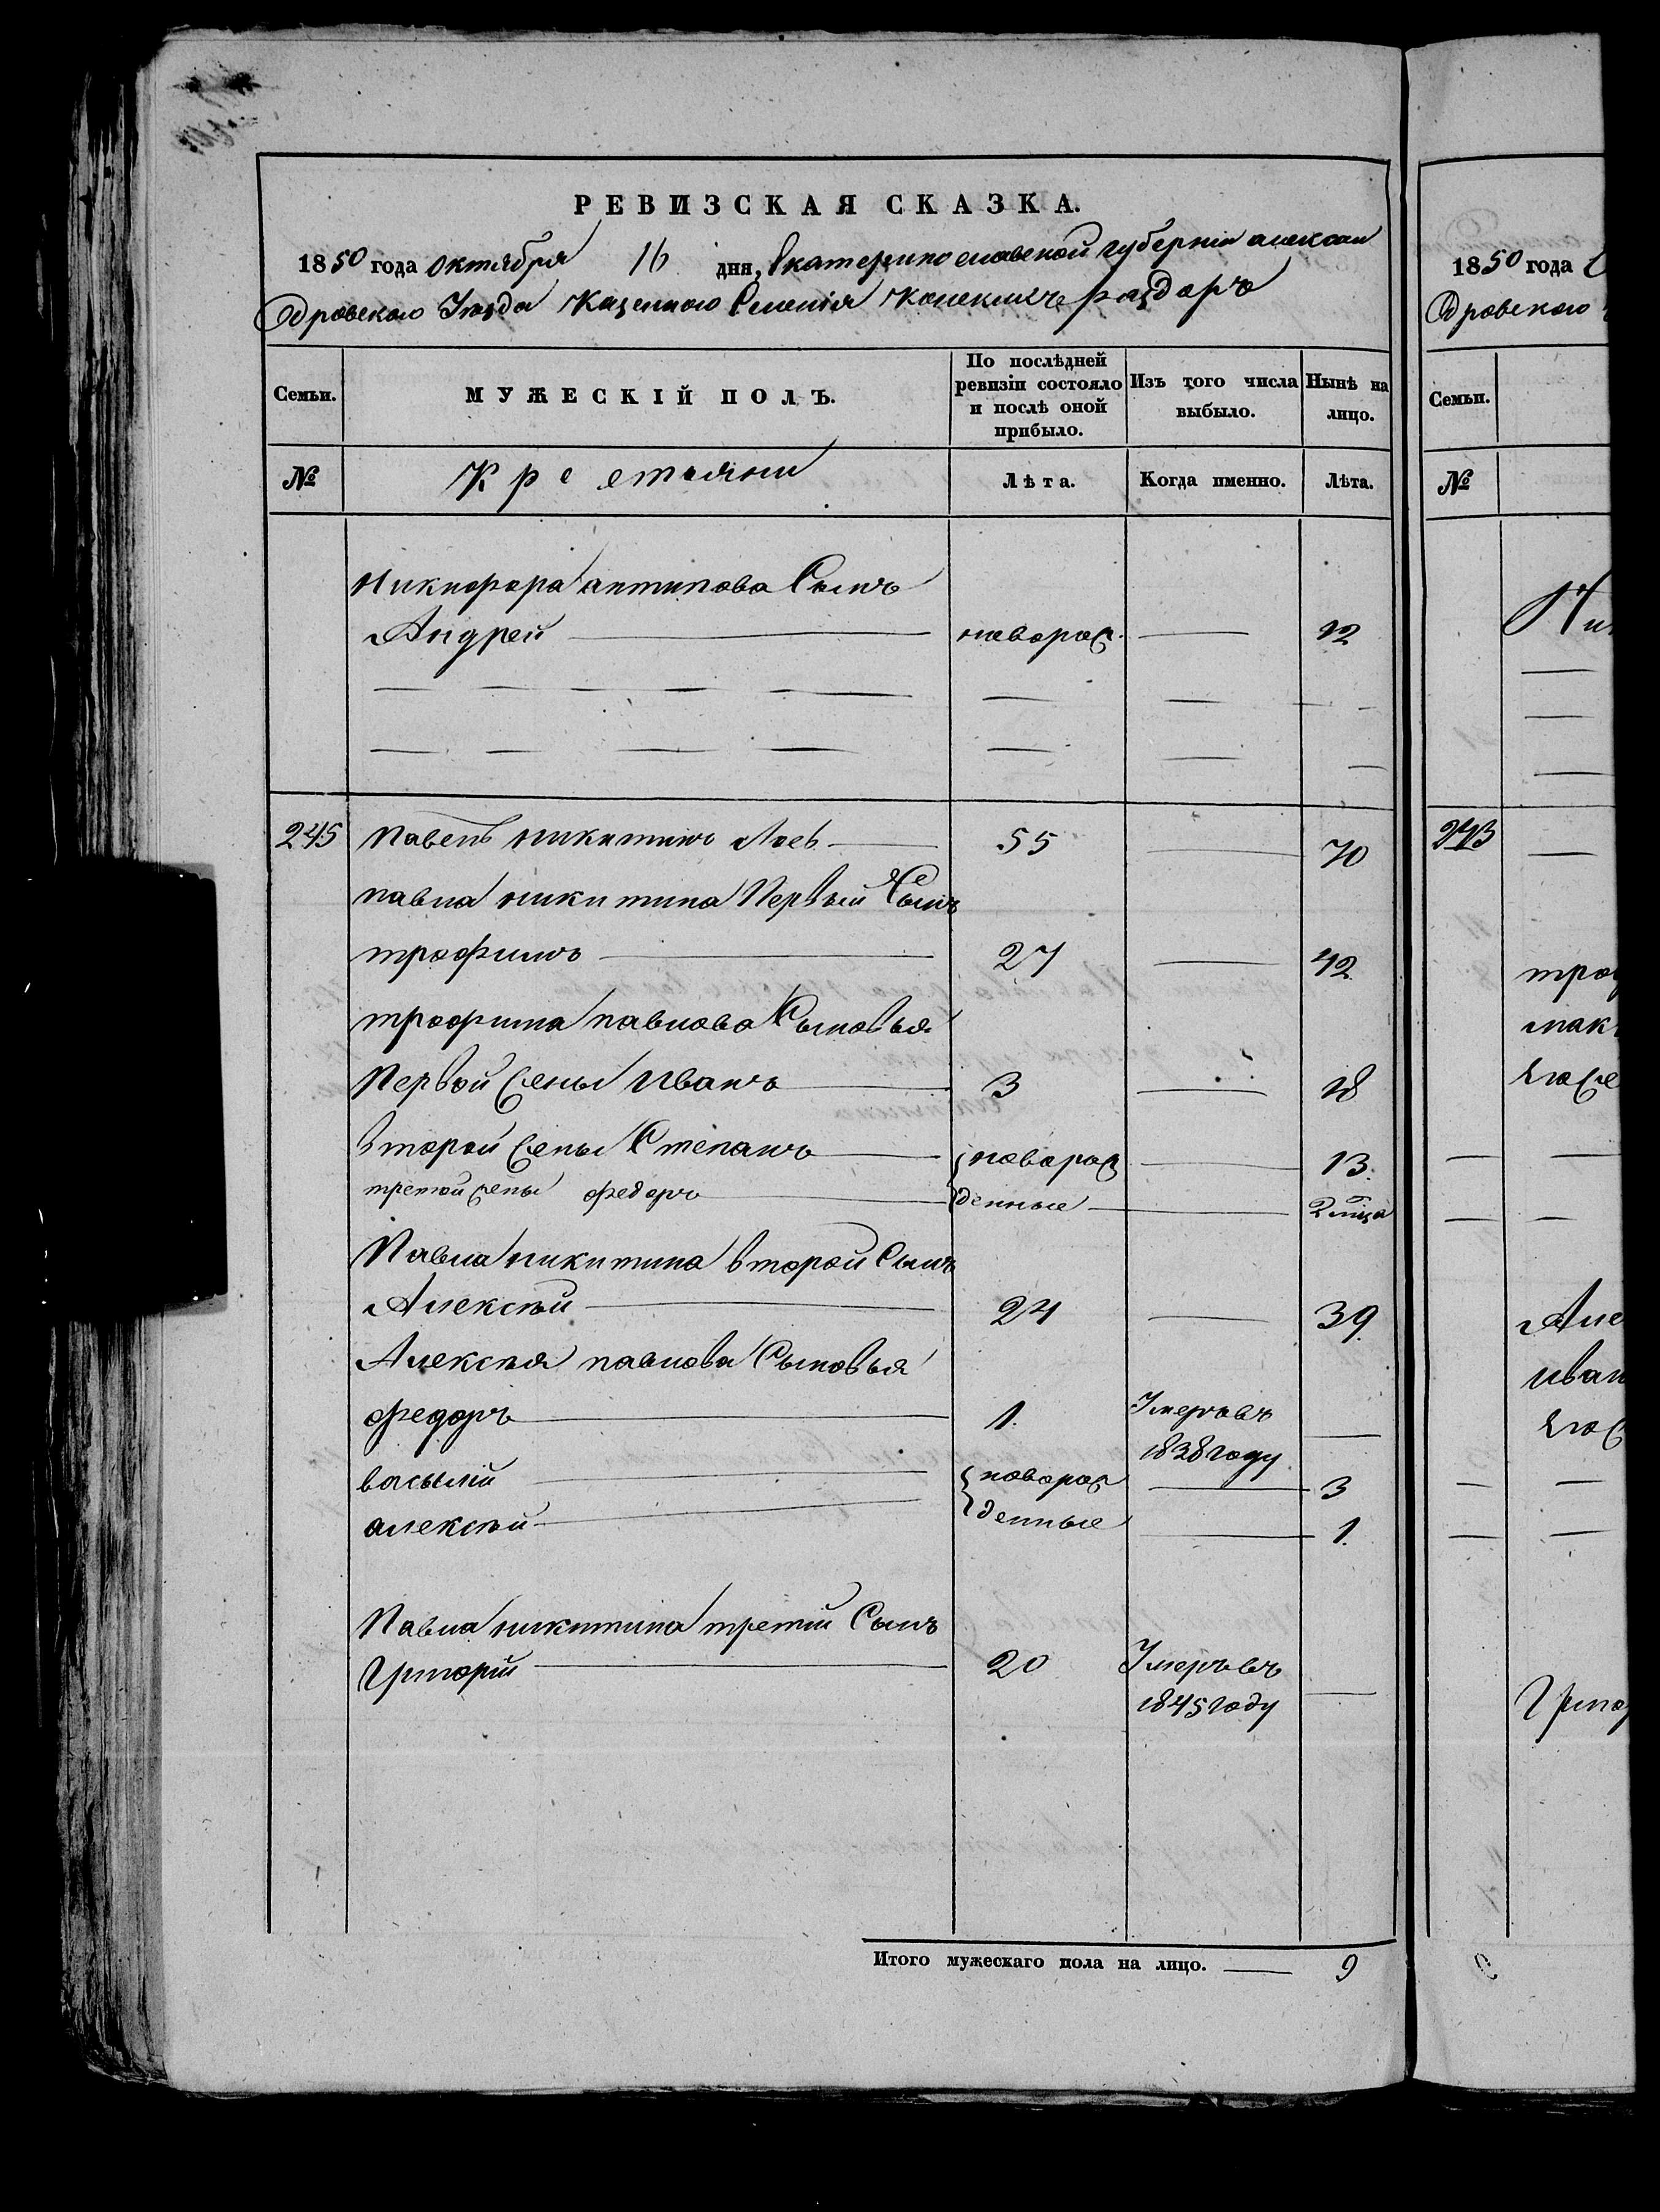 РЕВИЗСКАЯ СКАЗКА.
1850 года октября 16 дня, Екатеринославской губерніи алексан
дровского Уезда Казенного Селенія Конскихъ раздоръ
Семьи. МУЖЕСКІЙ ПОЛЪ. По послѣдней ревизіи состояло и послѣ оной прибыло. Изъ того числа выбыло. Нынѣ на лицо.
№ Крестьяни Лѣта. Когда именно. Лѣта.
Никифора антипова Сынъ
Андрей новорож. 12
245 Павелъ никитинъ 55 70
павла никитина Первый Сынъ
трофимъ 27 42
трофима павлова Сыновья
Первой Жены Иванъ 3 18
второй жены Степанъ новорож 13.
третой жены федоръ денные 2 мца
Павла никитина второй Сынъ
Алексѣй 24 39.
Алексѣя павлова Сыновья
федоръ 1. Умеръ въ
1838 году
василій новорож 3
алексѣй денные 1.
Павла никитина третій Сынъ
Григорій 20 Умеръ въ
1845 году
Итого мужескаго пола на лицо. 9
1850 года
дровского
Семьи.
№
Ник
245
троф
мак
Але
иван
Григо